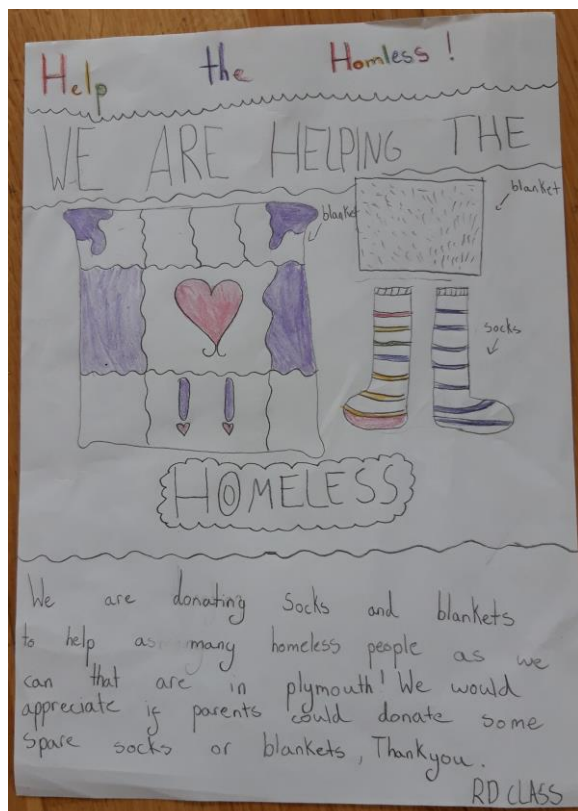 Help the Homless!
WE ARE HELPING THE
blanket
blanket
socks
HOMELESS
We are donating Socks and blankets
to help as many homeless people as we
can that are in plymouth! We would
appreciate if parents could donate some
Spare socks or blankets, Thankyou.
RD CLASS